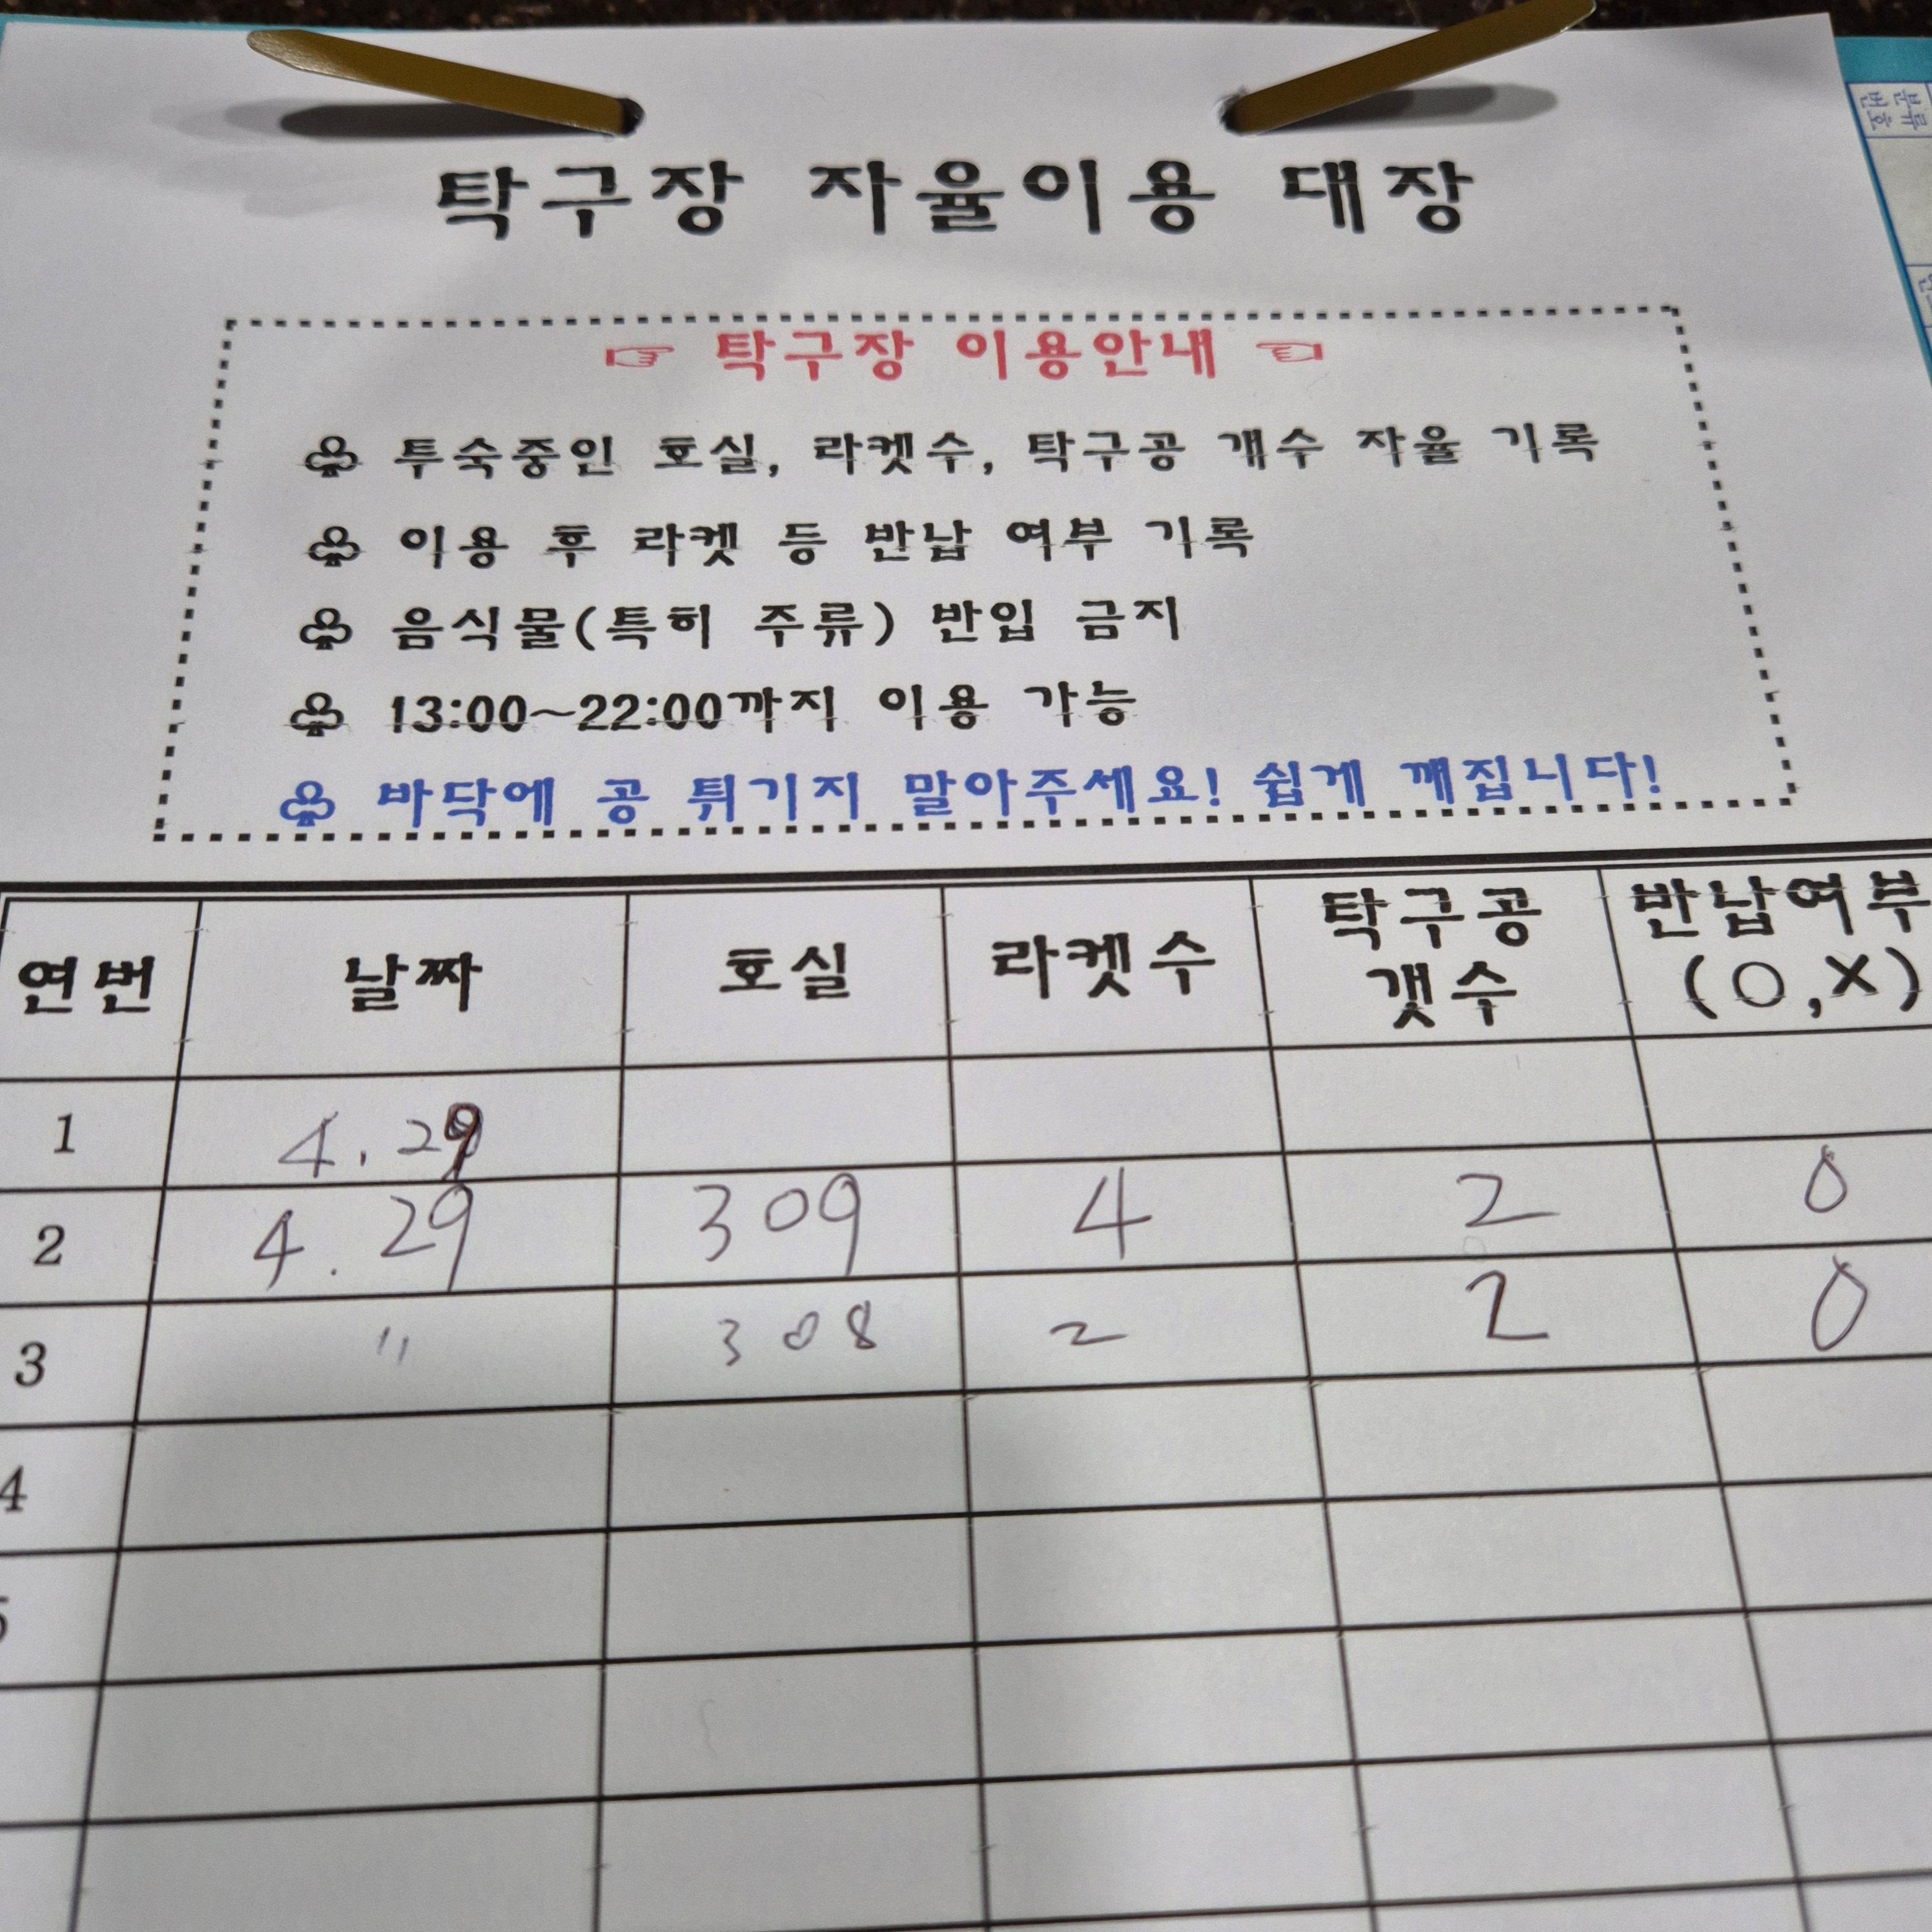 탁구장 자율이용 대장
☞ 탁구장 이용안내 ☜
♧ 투숙중인 호실, 라켓수, 탁구공 개수 자율 기록
♧ 이용 후 라켓 등 반납 여부 기록
♧ 음식물(특히 주류) 반입 금지
♧ 13:00~22:00까지 이용 가능
♧ 바닥에 공 튀기지 말아주세요! 쉽게 깨집니다!
연번 날짜 호실 라켓수 탁구공 갯수 반납여부 (O,X)
1 4.29
2 4.29 309 4 2 O
3 " 308 2 2 O
4
5
분류
번호